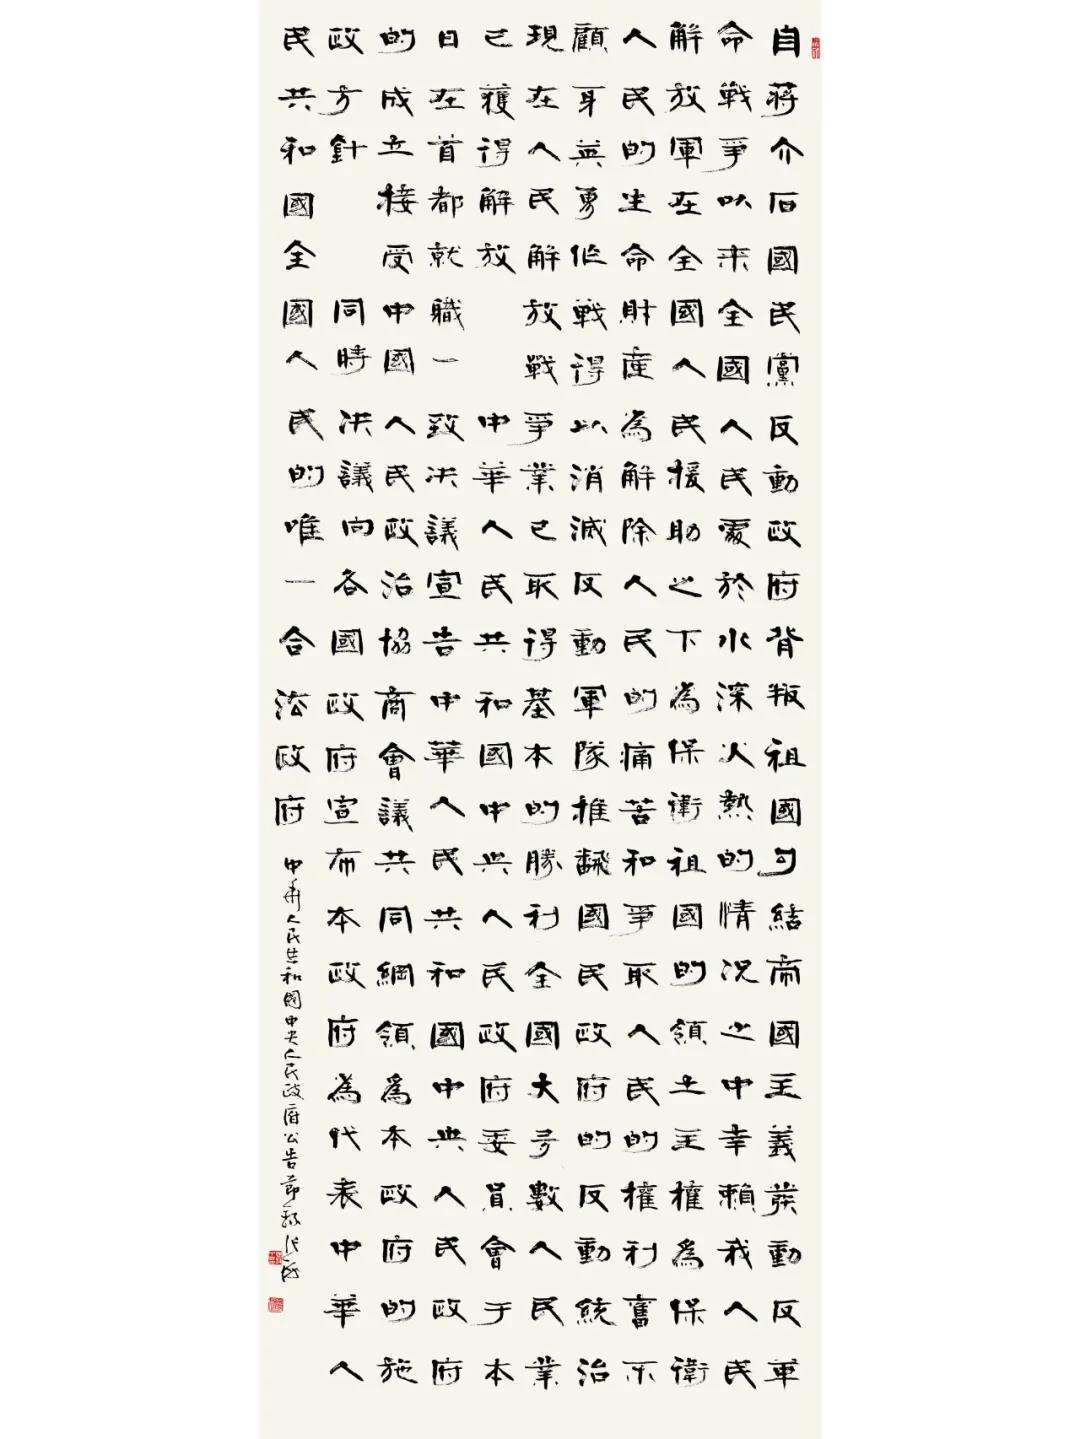 自蒋介石國民黨反動政府背叛祖國勾結帝國主義發動反革
命戰爭以来全國人民處於水深火熱的情况之中幸賴我人民
解放軍在全國人民援助之下為保衛祖國的領土主權為保衛
人民的生命財産為解除人民的痛苦和爭取人民的權利奮不
顧身英勇作戰得以消滅反動軍隊推翻國民政府的反動統治
現在人民解放戰爭業已取得基本的勝利全國大多數人民業
已獲得解放 中華人民共和國中央人民政府委員會于本
日在首都就職一致决議宣告中華人民共和國中央人民政府
的成立接受中國人民政治協商會議共同綱領為本政府的施
政方針 同時决議向各國政府宣布本政府為代表中華人
民共和國全國人民的唯一合法政府
中華人民共和國中央人民政府公告節録